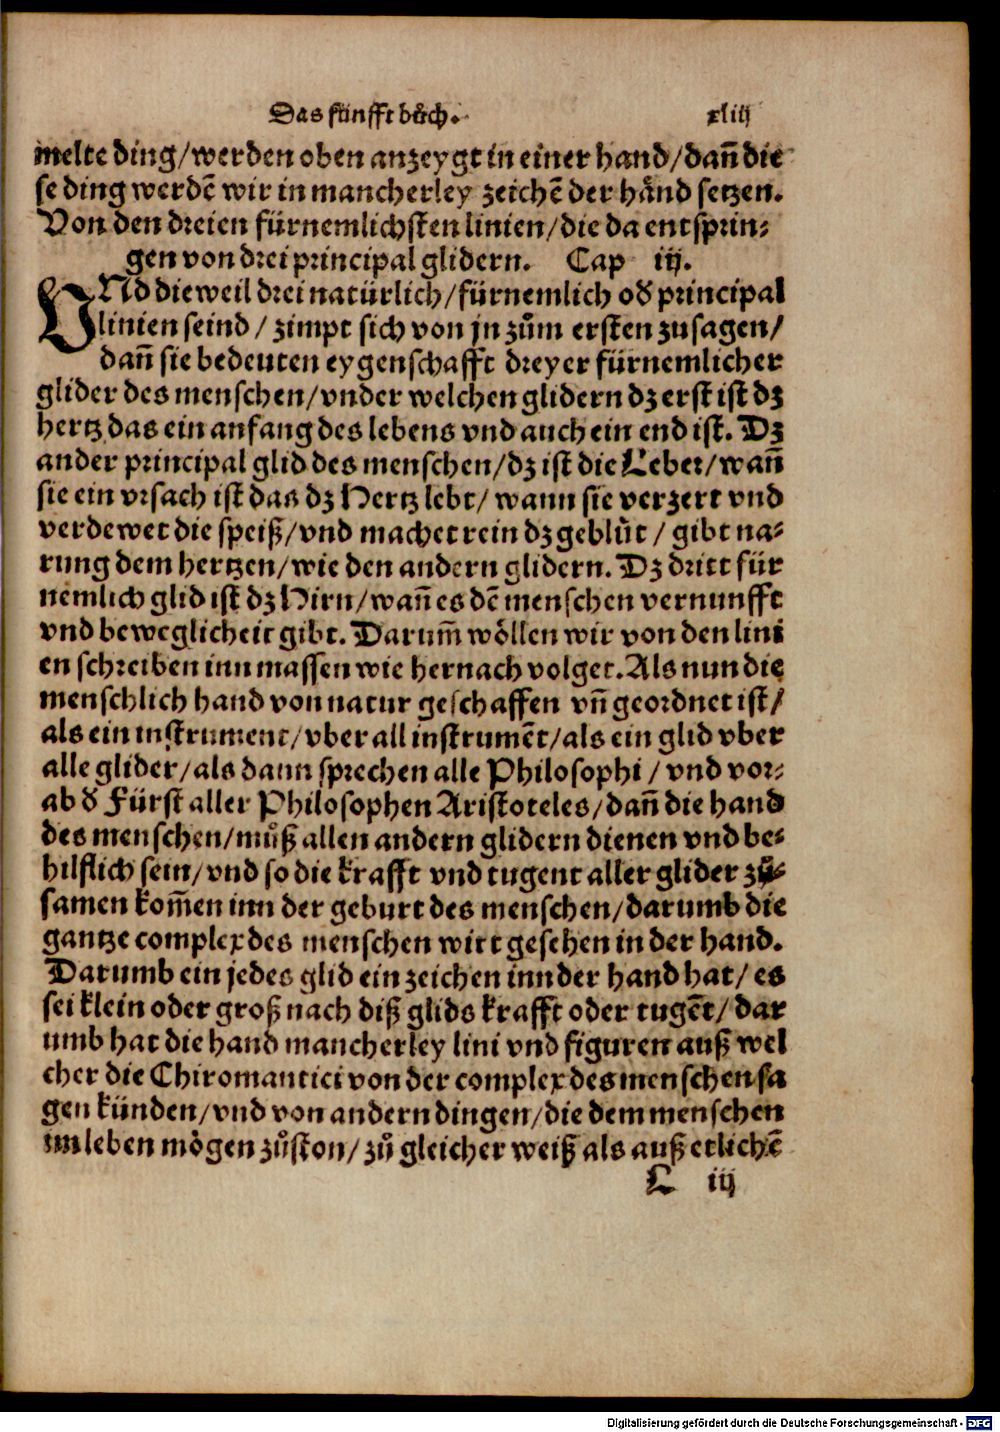 Das fünfft bůch. xliij
melte ding/werden oben anzeygt in einer hand/dañ die
se ding werdē wir in mancherley zeichē der hånd setzen.
Von den dreien fürnemlichsten linien/die da entsprin⸗
gen von drei principal glidern. Cap iij.
VNd dieweil drei natürlich/fürnemlich oď principal
linien seind / zimpt sich von jn zům ersten zusagen/
dañ sie bedeuten eygenschafft dreyer fürnemlicher
glider des menschen/vnder welchen glidern dz erst ist dz
hertz das ein anfang des lebens vnd auch ein end ist. Dz
ander principal glid des menschen/dz ist die Leber/wañ
sie ein vrsach ist das dz Hertz lebt/ wann sie verzert vnd
verdewet die speiß/vnd machet rein dz geblůt / gibt na⸗
rung dem hertzen/wie den andern glidern. Dz dritt für
nemlich glid ist dz Hirn/wañ es dē menschen vernunfft
vnd beweglicheit gibt. Darum̃ wöllen wir von den lini
en schreiben inn massen wie hernach volget. Als nun die
menschlich hand von natur geschaffen vñ geordnet ist/
als ein instrument/vber all instrumēt/als ein glid vber
alle glider/als dann sprechen alle Philosophi / vnd vor⸗
ab ď Fürst aller Philosophen Aristoteles/dañ die hand
des menschen/můß allen andern glidern dienen vnd be⸗
hilflich sein/vnd so die krafft vnd tugent aller glider zů⸗
samen kom̃en inn der geburt des menschen/darumb die
gantze complex des menschen wirt gesehen in der hand.
Darumb ein jedes glid ein zeichen inn der hand hat/ es
sei klein oder groß nach diß glids krafft oder tugēt/ dar
umb hat die hand mancherley lini vnd figuren auß wel
cher die Chiromantici von der complex des menschen sa
gen künden/vnd von andern dingen/die dem menschen
im leben mögen zůston/ zů gleicher weiß als auß etlichē
L iij
Digitalisierung gefördert durch die Deutsche Forschungsgemeinschaft - DFG